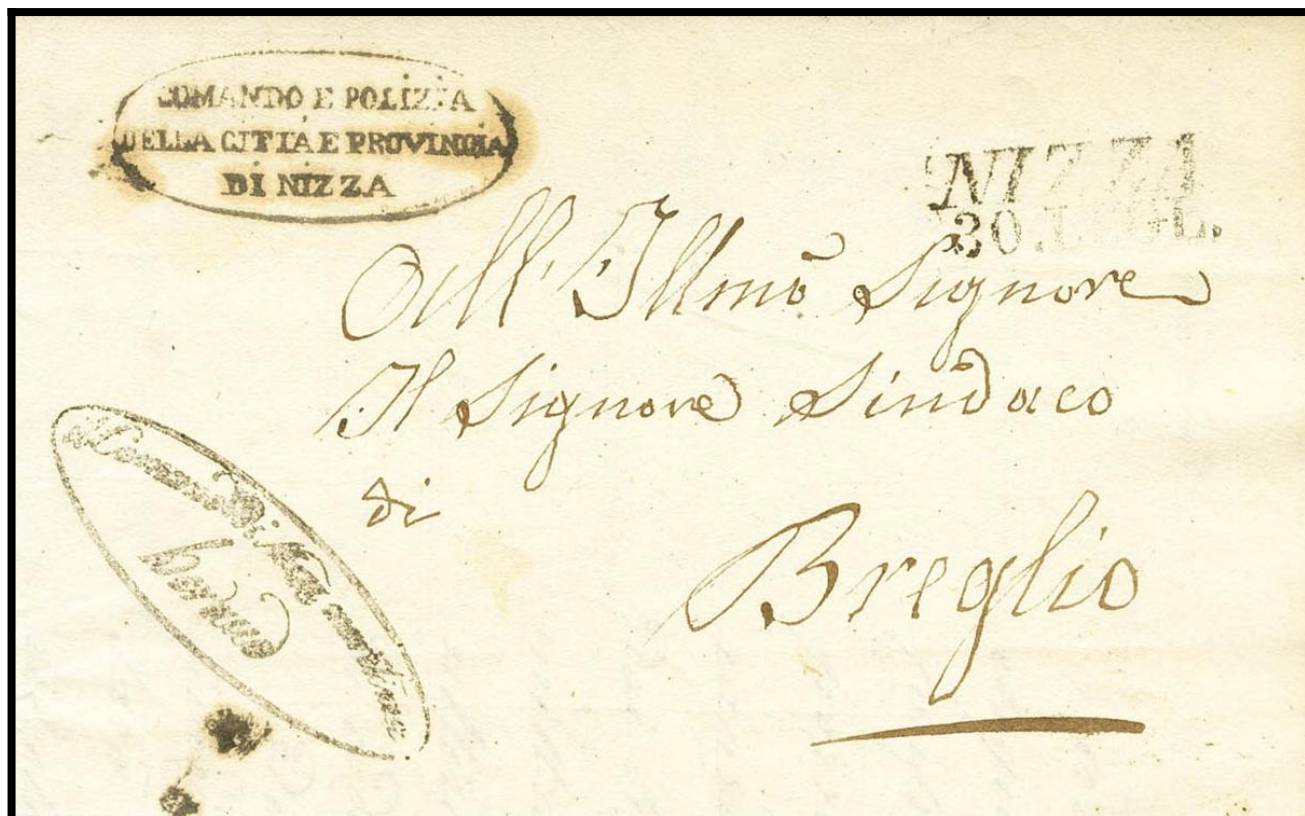 COMANDO E POLIZIA
DELLA CITTA E PROVINCIA
DI NIZZA
NIZZA
30.
All' Illmo Signore
Il Signore Sindaco
di
Breglio